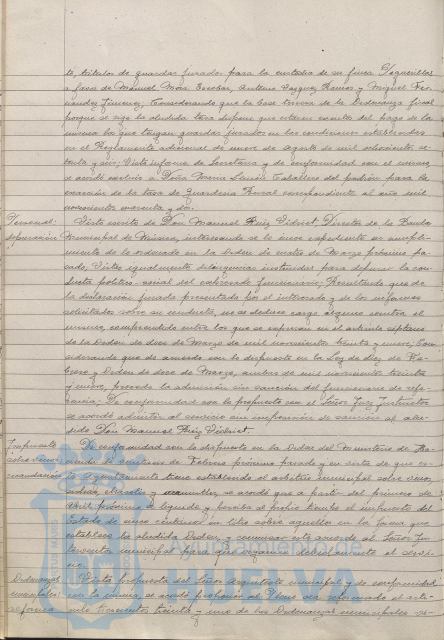 to, títulos de guardas jurados para la custodia de su finca
a favor de Manuel Mora Escobar, Antonio Vazquez Ramos y Miguel Fer-
nandez Jimenez; Considerando que la base tercera de la Ordenanza fiscal
porque se rige la aludida tasa dispone que estarán exentos del pago de la
misma los que tengan guardas jurados en las condiciones establecidas
en el Reglamento adicional de nueve de agosto de mil ochocientos se-
tenta y seis; Visto informe de Secretaría y de conformidad con el mismo,
se acordó excluir a Doña María Luisa Caballero del padrón para la
exacción de la tasa de Guardería Rural correspondiente al año mil
novecientos cuarenta y dos.
Personal Visto escrito de Don Manuel Ruiz Vidriet, Director de la Banda
depuración Municipal de Música, interesando se le incoe expediente en cumpli-
miento de lo ordenado en la Orden de cuatro de Marzo próximo pa-
sado; Vistas igualmente diligencias instruidas para depurar la con-
ducta político-social del expresado funcionario; Resultando que de
la declaración jurada presentada por el interesado y de los informes
solicitados sobre su conducta, no se deduce cargo alguno contra el
mismo, comprendido entre los que se expresan en el artículo séptimo
de la Orden de doce de Marzo de mil novecientos treinta y nueve; Con-
siderando que de acuerdo con lo dispuesto en la Ley de diez de Fe-
brero y Orden de doce de Marzo, ambas de mil novecientos treinta
y nueve, procede la admisión sin sanción del funcionario de refe-
rencia; De conformidad con la propuesta con el Señor Juez Instructor
se acordó admitir al servicio sin imposición de sanción al alu-
dido Don Manuel Ruiz Vidriet.
Impuesto De conformidad con lo dispuesto en la Orden del Ministerio de Ha-
cienda de veintiuno de Febrero próximo pasado y en vista de que es-
te Ayuntamiento tiene establecido el arbitrio municipal sobre vinos,
sidras, chacolís y se acordó que a partir del primero de
Abril próximo se liquide y perciba al propio tiempo el impuesto del
Estado de cinco céntimos en litro sobre aquellos en la forma que
establece la aludida Orden, y comunicar este acuerdo al Señor In-
terventor municipal para que organice debidamente el servi-
cio.
Ordenanzas Vista propuesta del Señor Arquitecto municipal y de conformidad
municipales con la misma, se acordó proponer al Pleno sea reformado el artí-
reforma culo trescientos treinta y uno de las Ordenanzas municipales re-
Ayuntamiento de
HUELVA